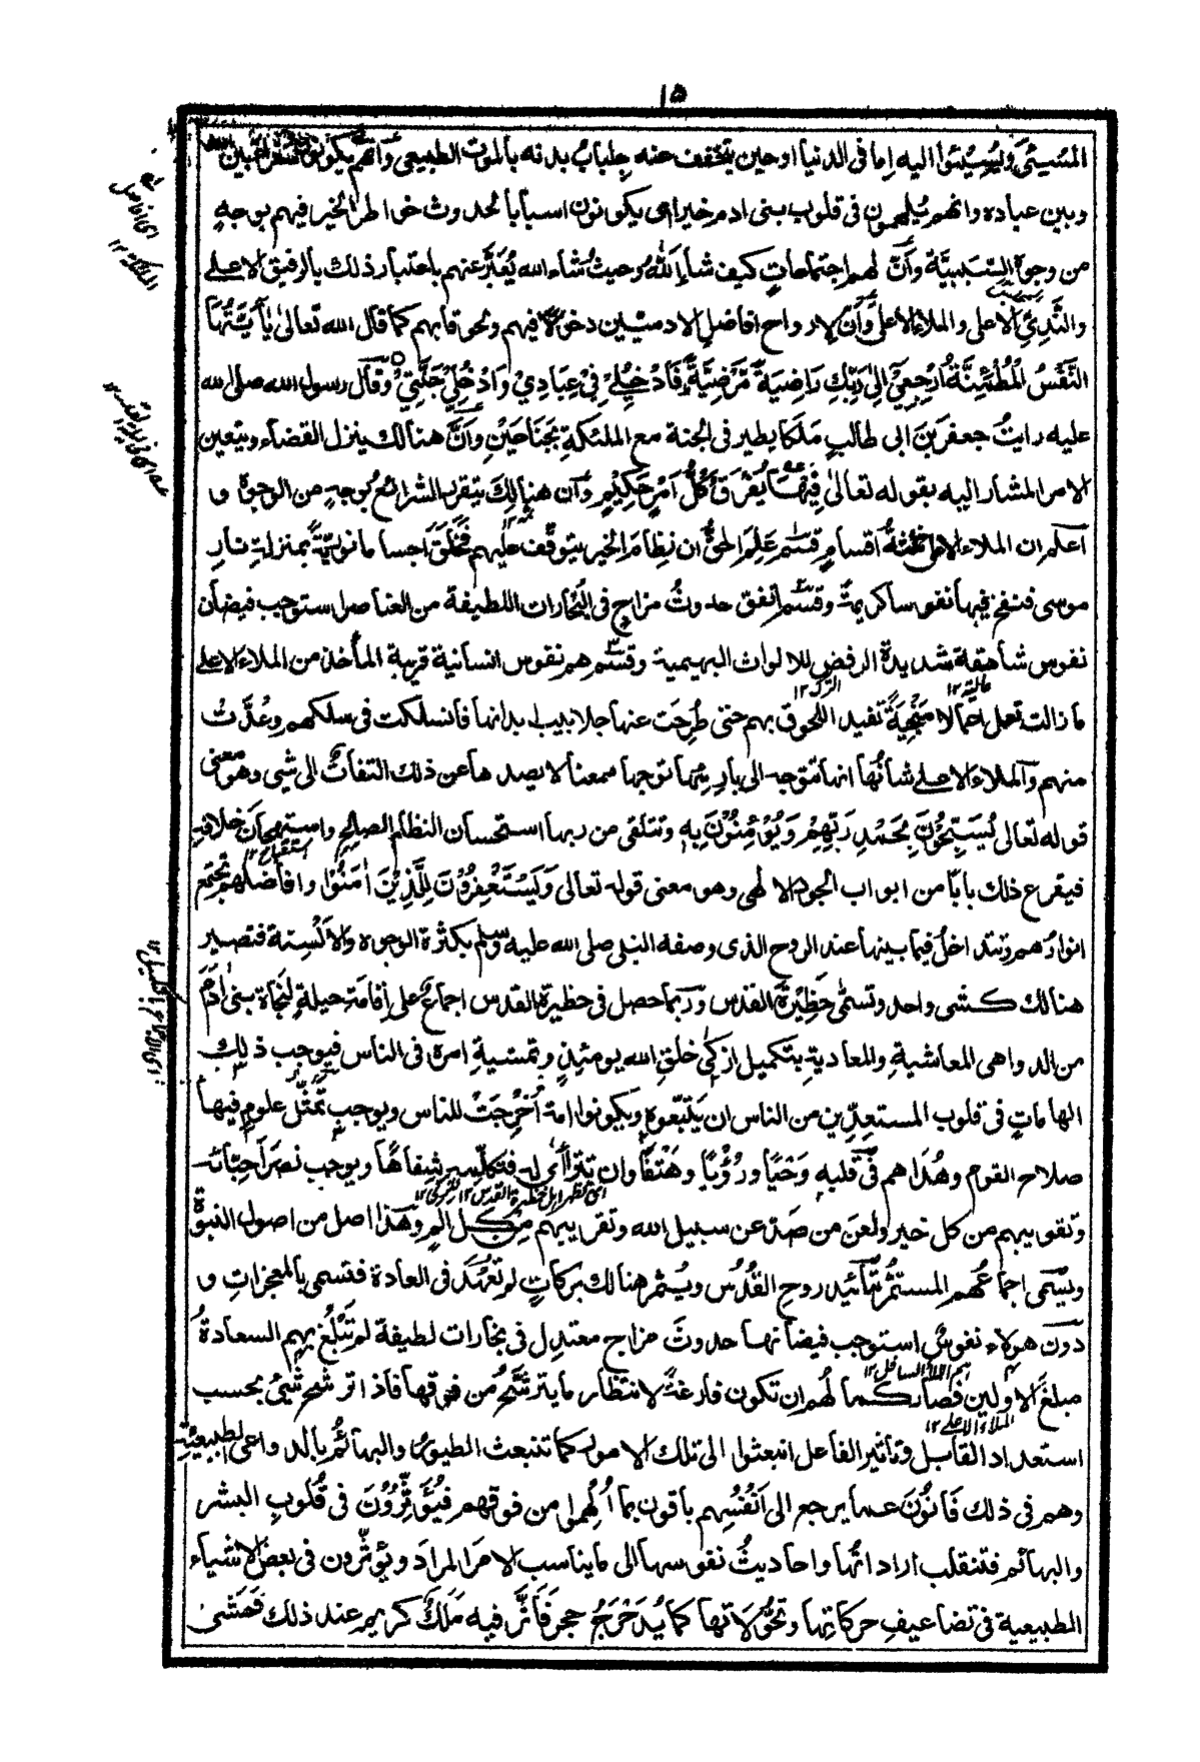 ١٥
المسيئ ويسيئوا اليه اما فى الدنيا او حين يتخفف عنه جلباب بدنه بالموت الطبيعى وانهم يكونون سفراء بين الله
وبين عباده وانهم يلهمون فى قلوب بنى ادم خيرا اى يكونون اسبابا لحدوث خواطر الخير فيهم بوجهٍ
من وجوه السَّبَبِيَّة وأنّ لهم اجتماعاتٍ كيف شاء اللهُ وحيثُ شاء الله يُعَبَّر عنهم باعتبار ذلك بالرفيق الاعلى
والنَّدِيِّ الاعلى والملاء الاعلى وأنّ لارواح افاضل الادميّين دخولا فيهم ولحوقا بهم كما قال الله تعالىٰ يٰأيَّتُهَا
النَّفْسُ الْمُطْمَئِنَّةُ ارْجِعِيْ اِلىٰ رَبِّكِ رَاضِيَةً مَّرْضِيَّةً فَادْخُلِيْ فِيْ عِبَادِيْ وَادْخُلِيْ جَنَّتِيْ وقال رسول الله صلى الله
عليه رايتُ جعفرَ بنَ ابى طالبٍ مَلَكا يطير فى الجنة مع الملئكةِ بجَناحَيْنِ وأنَّ هنالك ينزل القضاء ويتعين
الامر المشار اليه بقوله تعالىٰ فِيْهَا يُفْرَقُ كُلُّ اَمْرٍ حَكِيْمٍ وأن هنالِكَ يتقرر الشرائعُ بوجهٍ من الوجوه و
اعلم ان الملاء الاعلى ثلثةُ اقسامٍ قسمٌ عَلِمَ الحقُّ ان نِظامَ الخير يتوقّف عليهم فخَلَقَ اجساما نوريّةً بمنزلةِ نارِ
موسى فنفخ فيها نفوسا كريمةً وقسمٌ اتفق حدوثُ مزاجٍ فى البُخارات اللطيفة من العناصر استوجب فيضان
نفوس شاهقة شديدةِ الرفضِ للالواث البهيمية وقسمٌ هم نفوس انسانية قريبة المأخذ من الملاء الاعلى
عالية ١٢ الترك ١٢
ما زالت تعمل اعمالا مُنْجِيَةً تفيد اللحوق بهم حتى طُرِحَت عنها جلابيب ابدانها فانسلكت فى سلكهم وعُدَّتْ
منهم والملاء الاعلى شانُها انها تتوجه الى بارئها توجها ممعنا لا يصدها عن ذلك التفاتٌ الى شئ وهو معنى
قوله تعالى يُسَبِّحُوْنَ بِحَمْدِ رَبِّهِمْ وَيُؤْمِنُوْنَ بِهٖ وتتلقى من ربها استحسان النظام الصالح واستهجان خلافِه
استقباح ١٢
فيقرع ذلك بابًا من ابواب الجود الالهى وهو معنى قوله تعالى وَيَسْتَغْفِرُوْنَ لِلَّذِيْنَ اٰمَنُوْا وافاضلهم تجتمع
انوارُهم وتتداخلُ فيما بينها عند الروح الذى وصفه النبى صلى الله عليه وسلم بكثرة الوجوه والالْسِنة فتصير
هنالك كشئ واحد وتسمّى حَظِيْرةَ القدس وربما حصل فى حظيرة القدس اجماعٌ على اقامة حيلةٍ لنجاة بنى اٰدَمَ
من الدواهى المعاشيةِ والمعاديةِ بتكميل ازكىٰ خلقِ الله يومئذٍ وتمشيةِ امره فى الناس فيوجب ذلك
الهاماتٍ فى قلوب المستعِدّين من الناس ان يتّبعوه ويكونوا امة اُخْرِجَتْ للناس ويوجب تمثّل علومٍ فيها
صلاح القوم وهُداهم فى قلبه وَحْيًا ورُؤْيًا وهَتْفًا وان تتراأى له فتكلّمه شِفاهًا ويوجب نصرَ احبّائه
اى تظهر اهل حظيرة القدس ١٢
وتقويبهم من كل خير ولعنَ من صَدّ عن سبيل الله وتقريبهم من كل المٍ وهذا اصل من اصول النبوة
ويُسَمى اجماعُهم المستمرُّ بتائيد روحِ القُدُس ويُثمر هنالك بركاتٍ لم تُعْهَد فى العادة فتسمى بالمعجزاتِ و
دونَ هولاء نفوسٌ استوجب فيضانها حدوثَ مزاج معتدِل فى بخارات لطيفة لم تَبْلُغ بهم السعادةُ
هم الملاء السافل ١٢
مبلغَ الاولين فصار كمالُهم ان تكون فارغةً لانتظار ما يترشّحُ من فوقها فاذا ترشح شئٌ بحسب
الملاء الاعلى ١٢
استعداد القابل وتاثير الفاعل انبعثوا الى تلك الامور كما تنبعث الطيورُ والبهائمُ بالدواعى الطبيعيةِ
وهم فى ذلك فَانُوْنَ عما يرجع الى اَنْفُسِهم باقون بما اُلْهِموا من فوقهم فيُؤَثِّرُوْنَ فى قُلوبِ البشر
والبهائم فتنقلب ارادتُها واحاديثُ نفوسها الى ما يناسب الامرَ المرادَ ويؤثّرون فى بعض الاشياء
الطبيعية فى تضاعيفِ حركاتِها وتحوُّلاتها كما يُدَحْرَجُ حجر فَاَثَّر فيه مَلَكٌ كريم عند ذلك فمَشىٰ